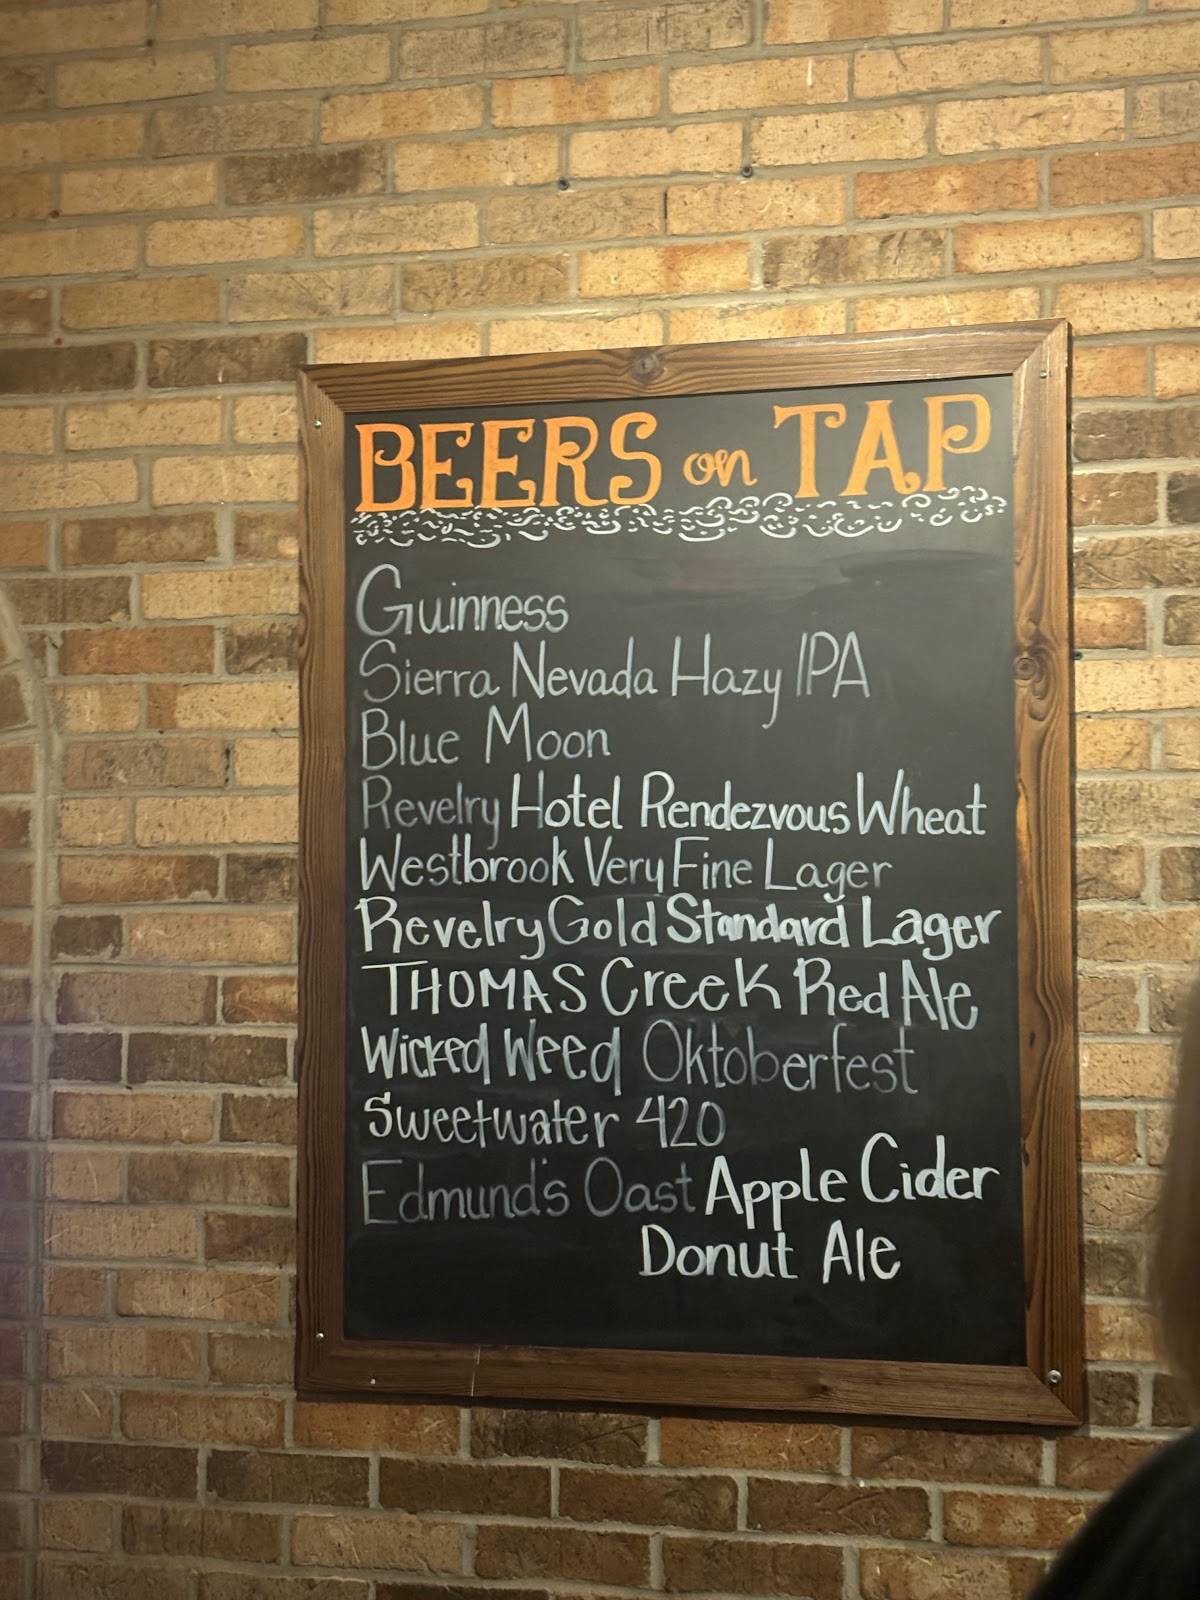 BEERS on TAP
Guinness
Sierra Nevada Hazy IPA
Blue Moon
Revelry Hotel Rendezvous Wheat
Westbrook Very Fine Lager
Revelry Gold Standard Lager
THOMAS Creek Red Ale
Wicked Weed Oktoberfest
Sweetwater 420
Edmund's Oast Apple Cider
Donut Ale